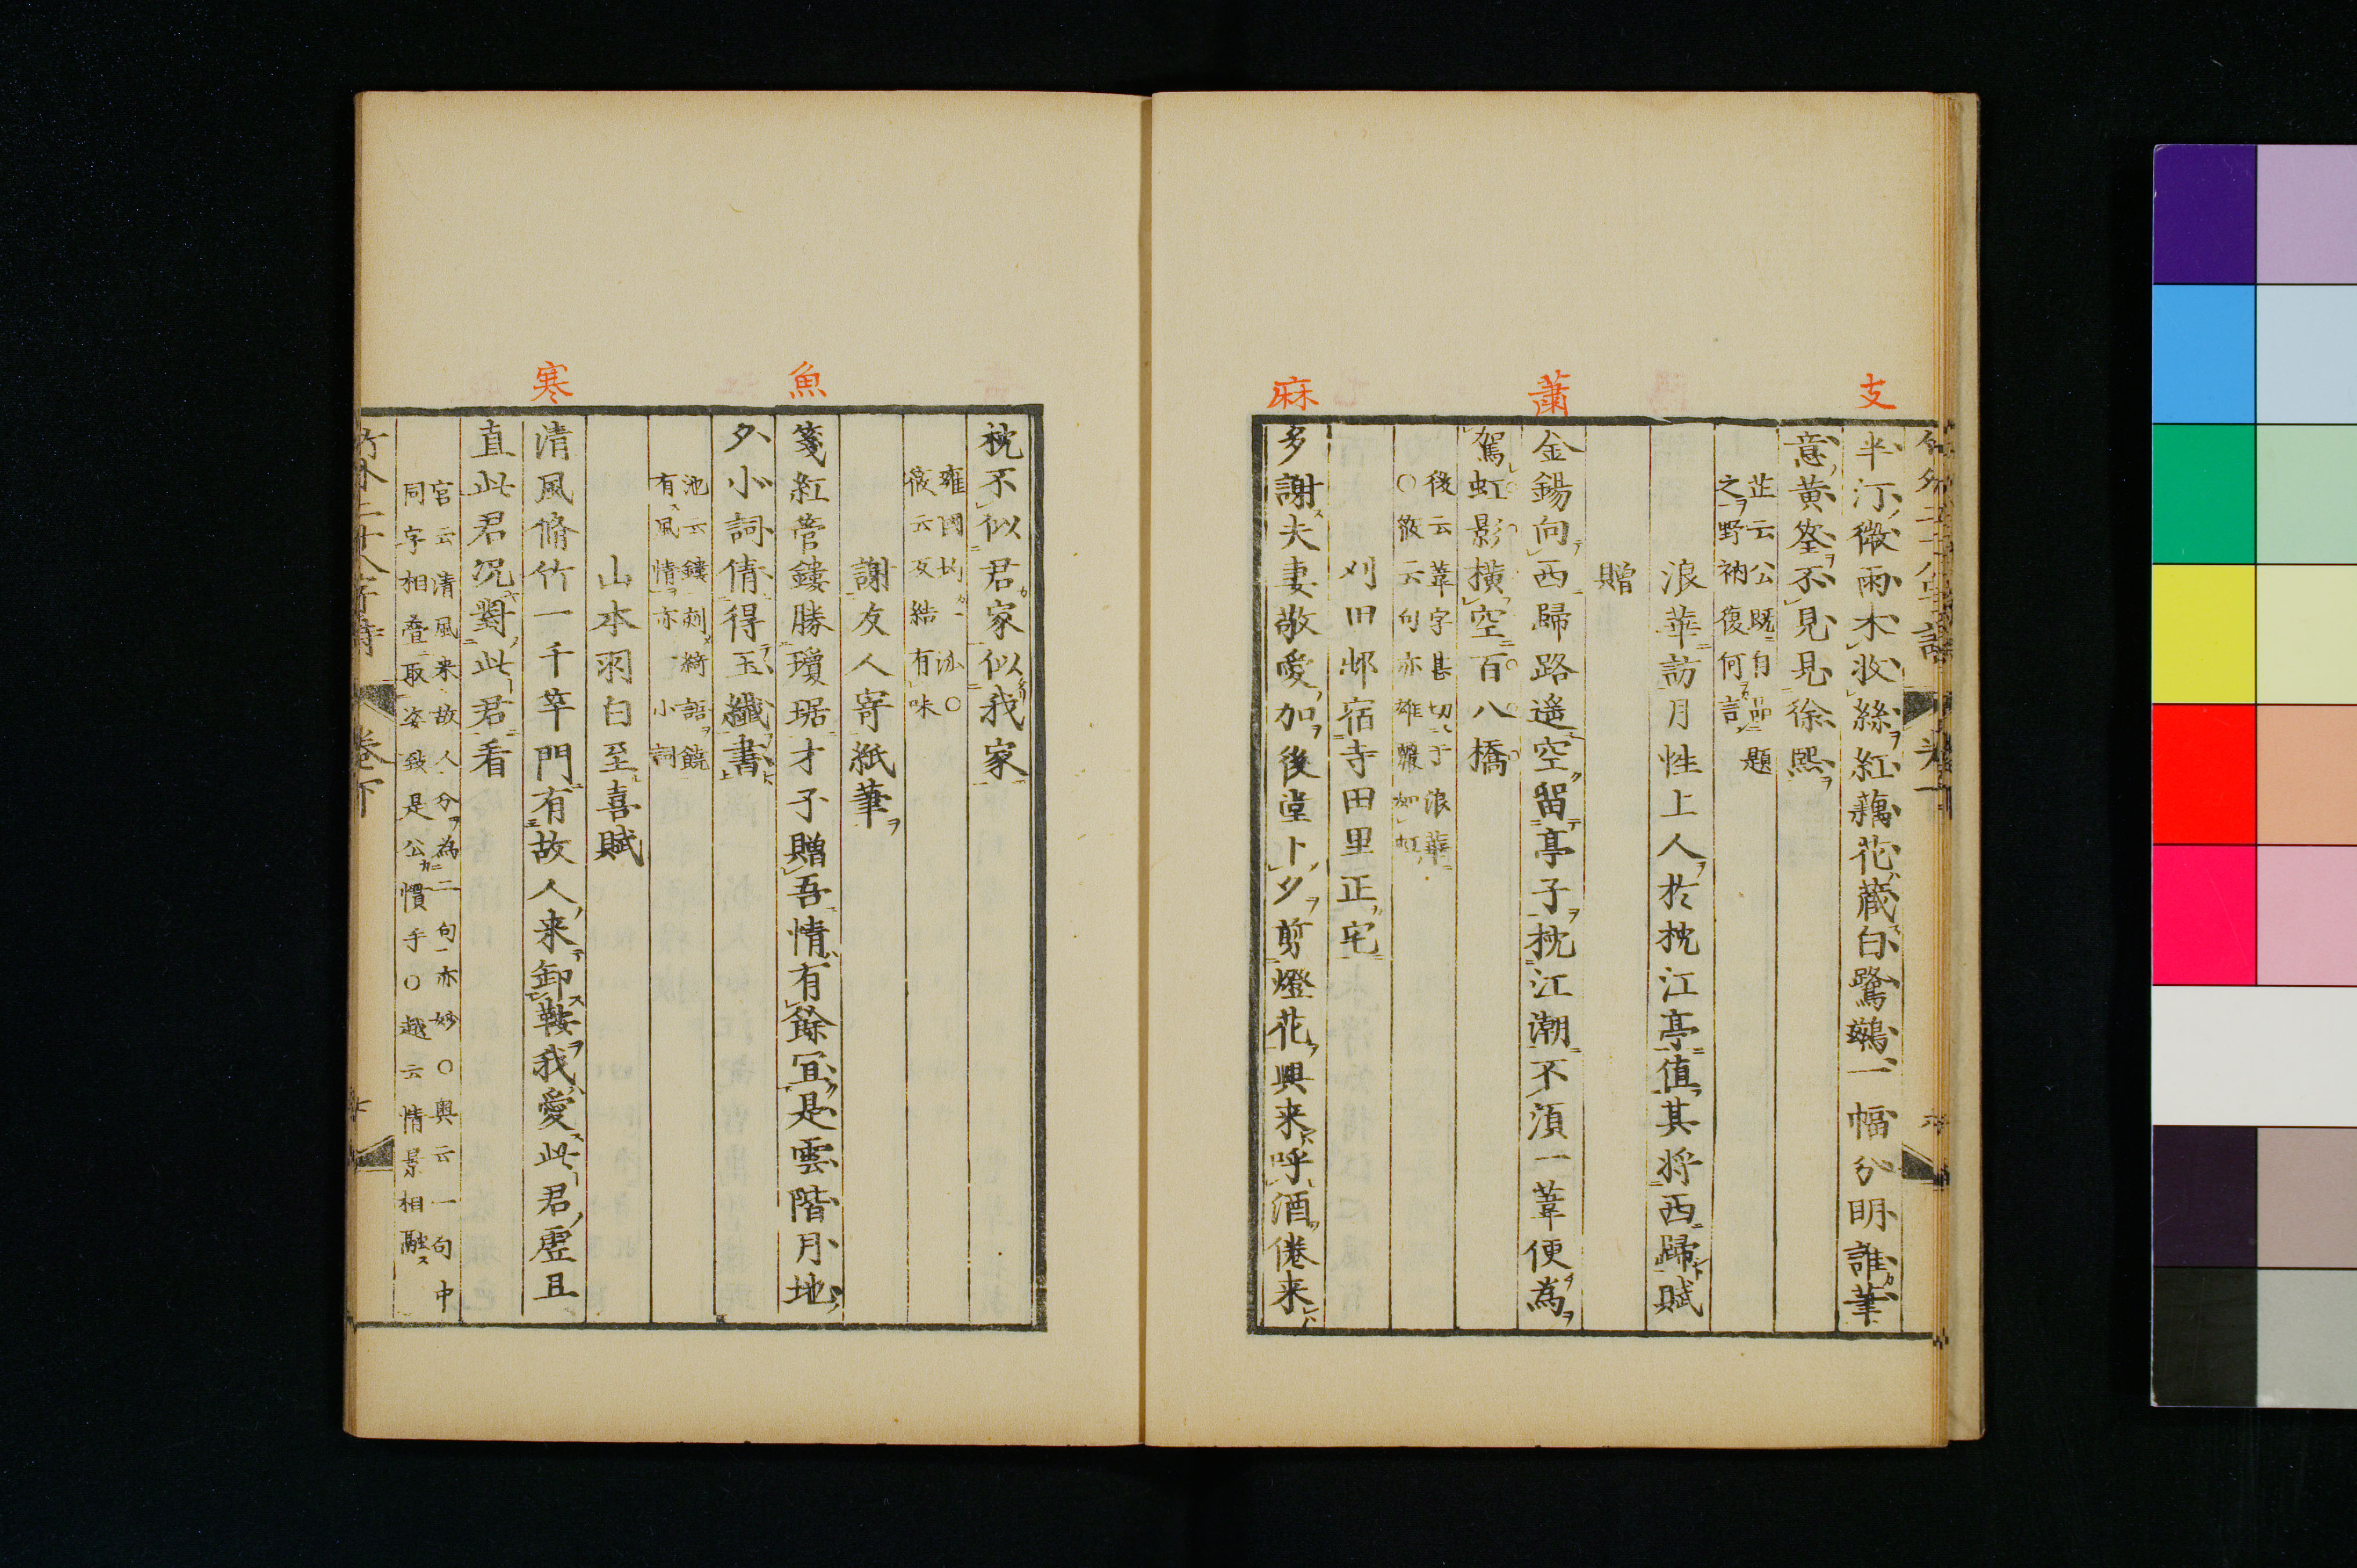 支
半汀微雨水收絲紅藕花蔵白鷺鷀一幅分明誰筆
意黄筌不見見徐熙
芷云公既自品題
之野衲復何言
浪華訪月性上人於枕江亭値其将西歸賦
贈
蕭
金錫向西歸路遙空留亭子枕江潮不須一葦便為
駕虹影横空百八橋
後云葦字甚切于浪華
○筱云句亦雄麗如虹
刈田邨宿寺田里正宅
麻
多謝夫妻敬愛加後堂卜夕剪燈花興来呼酒倦来
枕不似君家似我家
雍門均一派○
筱云反結有味
謝友人寄紙筆
魚
箋紅管鏤勝瓊琚才子贈吾情有餘冝是雲階月地
外小詞倩得玉纖書
池云鏤刻綺語饒
有風情亦一小詞
山本羽白至喜賦
寒
清風脩竹一千竿門有故人来卸鞍我愛此君虚且
直此君況對此君看
宮云清風来故人分為二句亦妙○奥云一句中
同字相疊取姿致是公慣手○越云情景相融
竹外二十八字詩 卷下 七